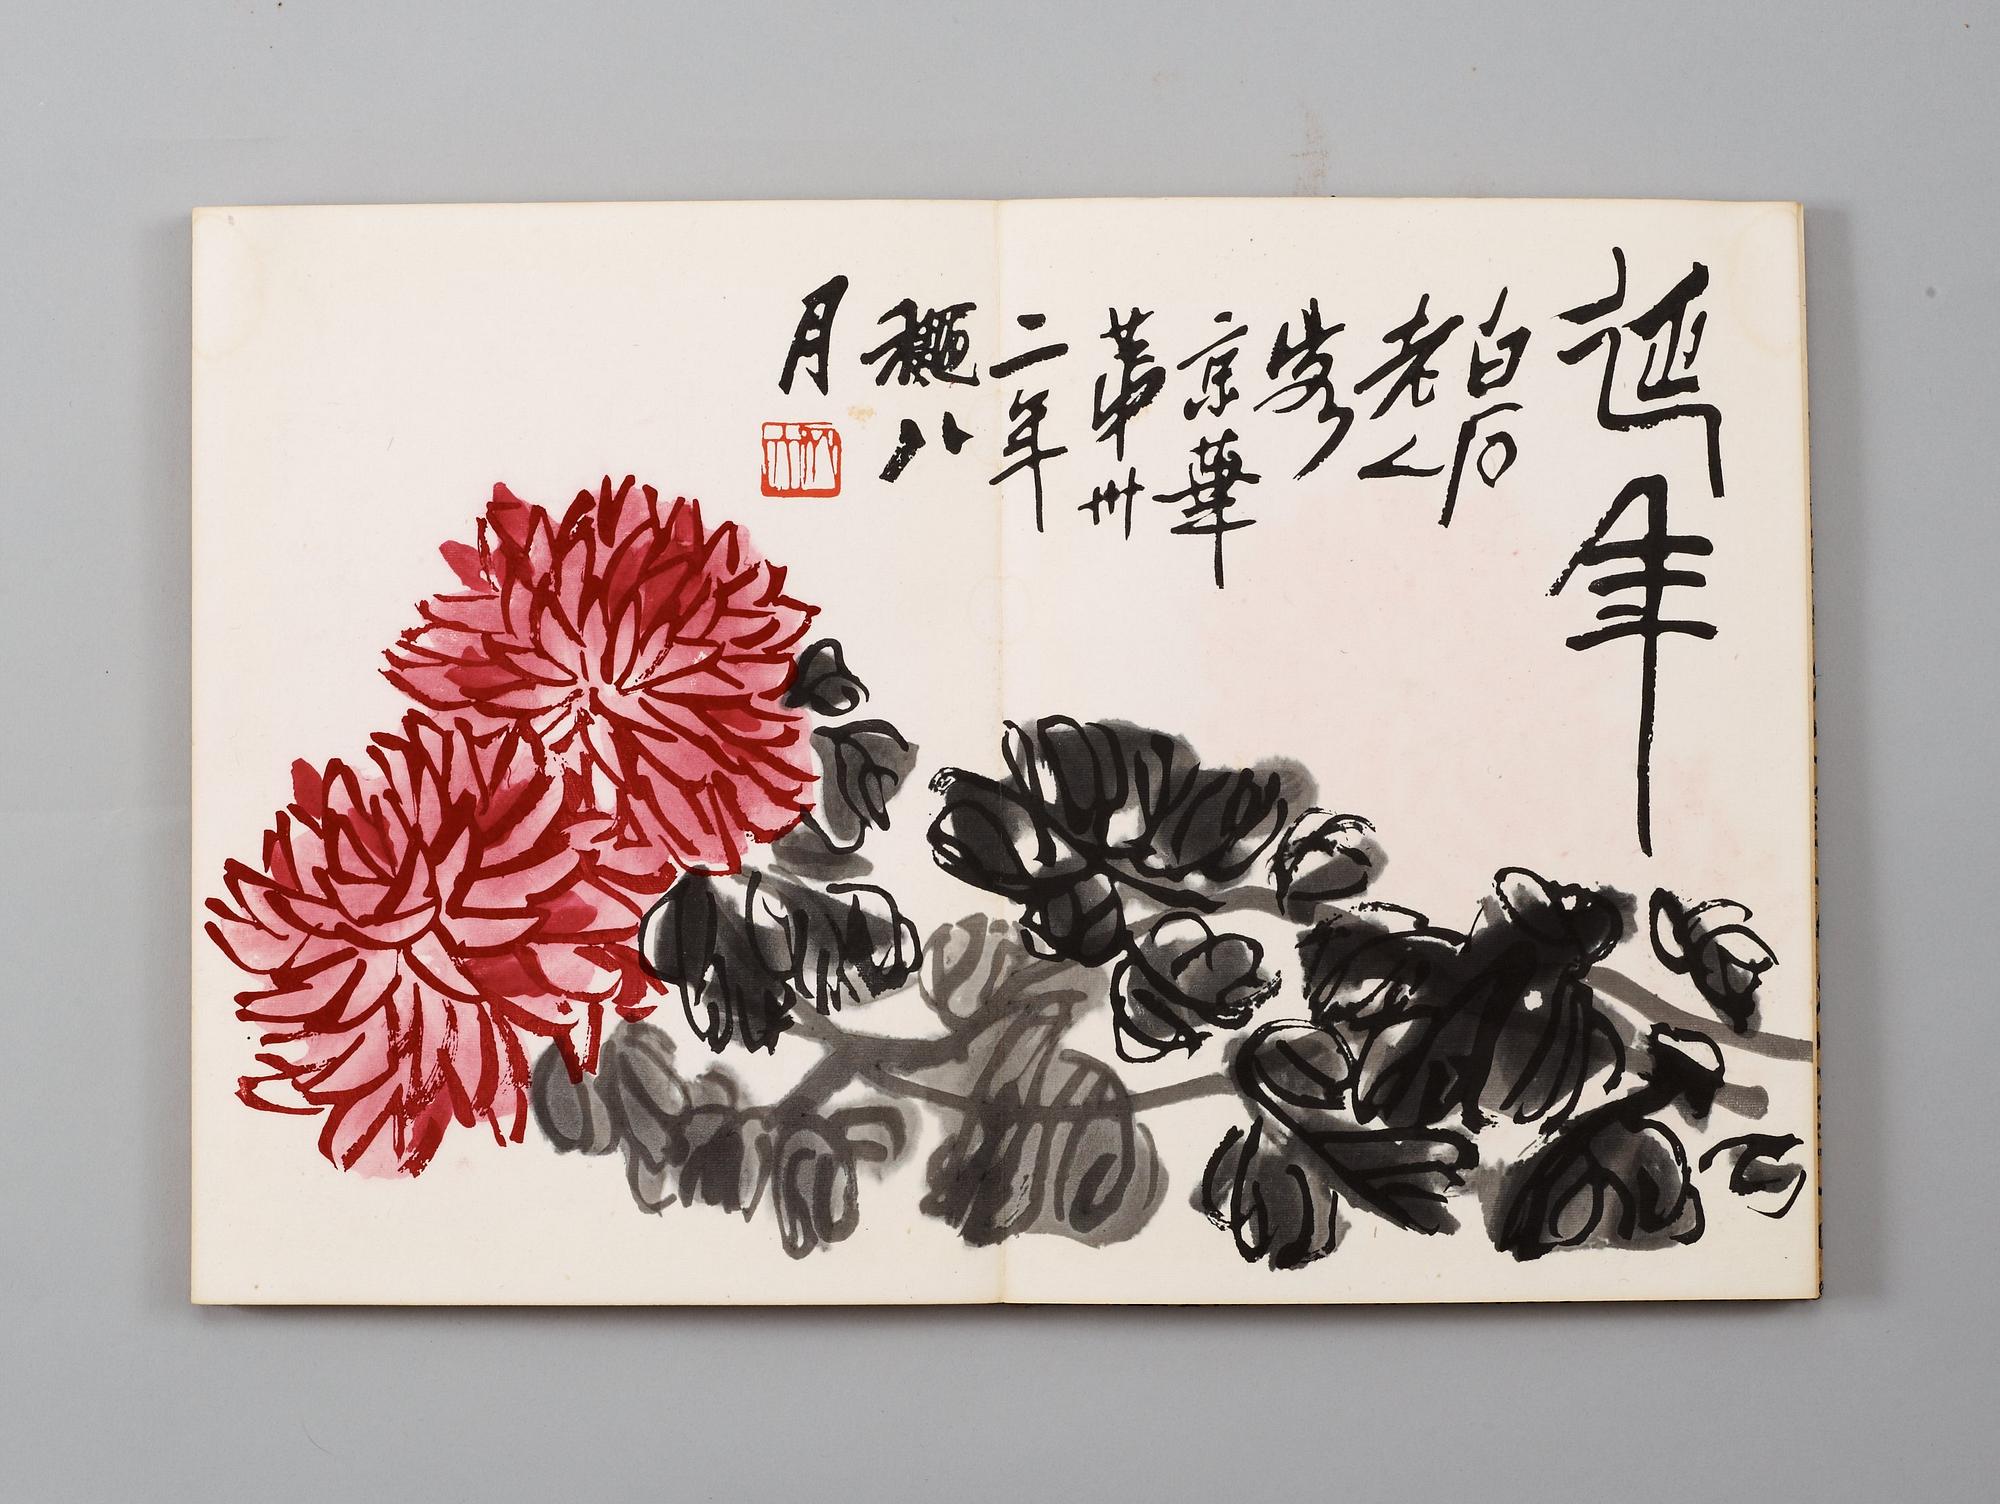 延年
白石
老人
客
京華
苐卅
二年
龝八
月